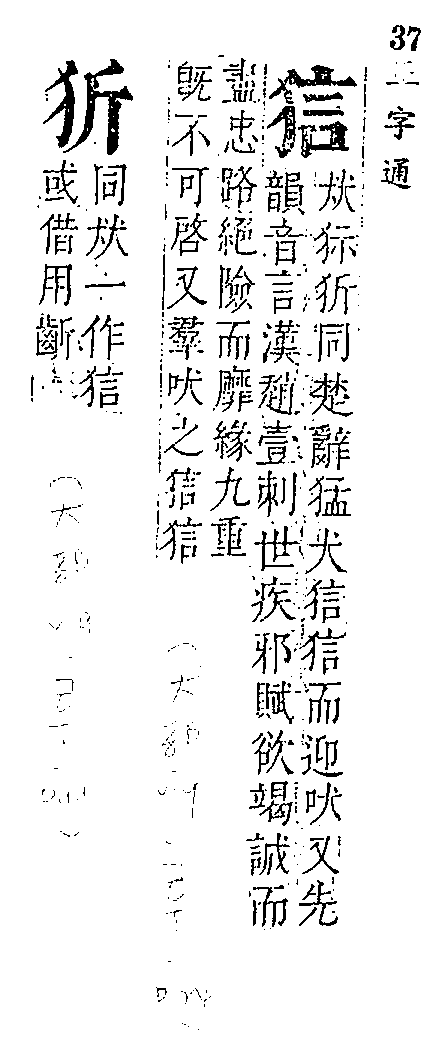 37
正字通
狺
㹜𤝬㹞同楚辭猛犬狺狺而迎吠又先
韻音言漢趙壹刺世疾邪賦欲竭誠而
盡忠路絕險而靡緣九重
旣不可啓又羣吠之狺狺
㹞
同㹜一作狺
或借用齗